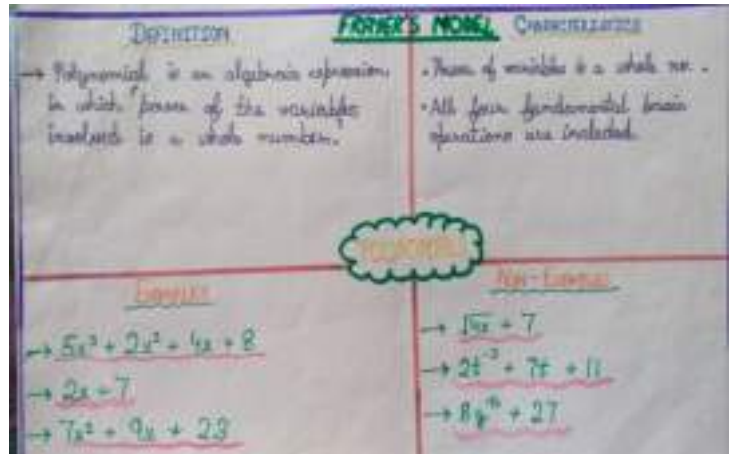 FRAYER'S MODEL
DEFINITION
→ Polynomial is an algebraic expression
in which "power of the variables
involved is a whole number."
CHARACTERISTICS
• Power of variables is a whole no.
• All four fundamental basic
operations are included.
POLYNOMIALS
EXAMPLES
→ 5x³ + 2x² + 4x + 8
→ 2x + 7
→ 7x² + 9x + 23
NON-EXAMPLES
→ √4x + 7
→ 2t⁻³ + 7t + 11
→ + 27